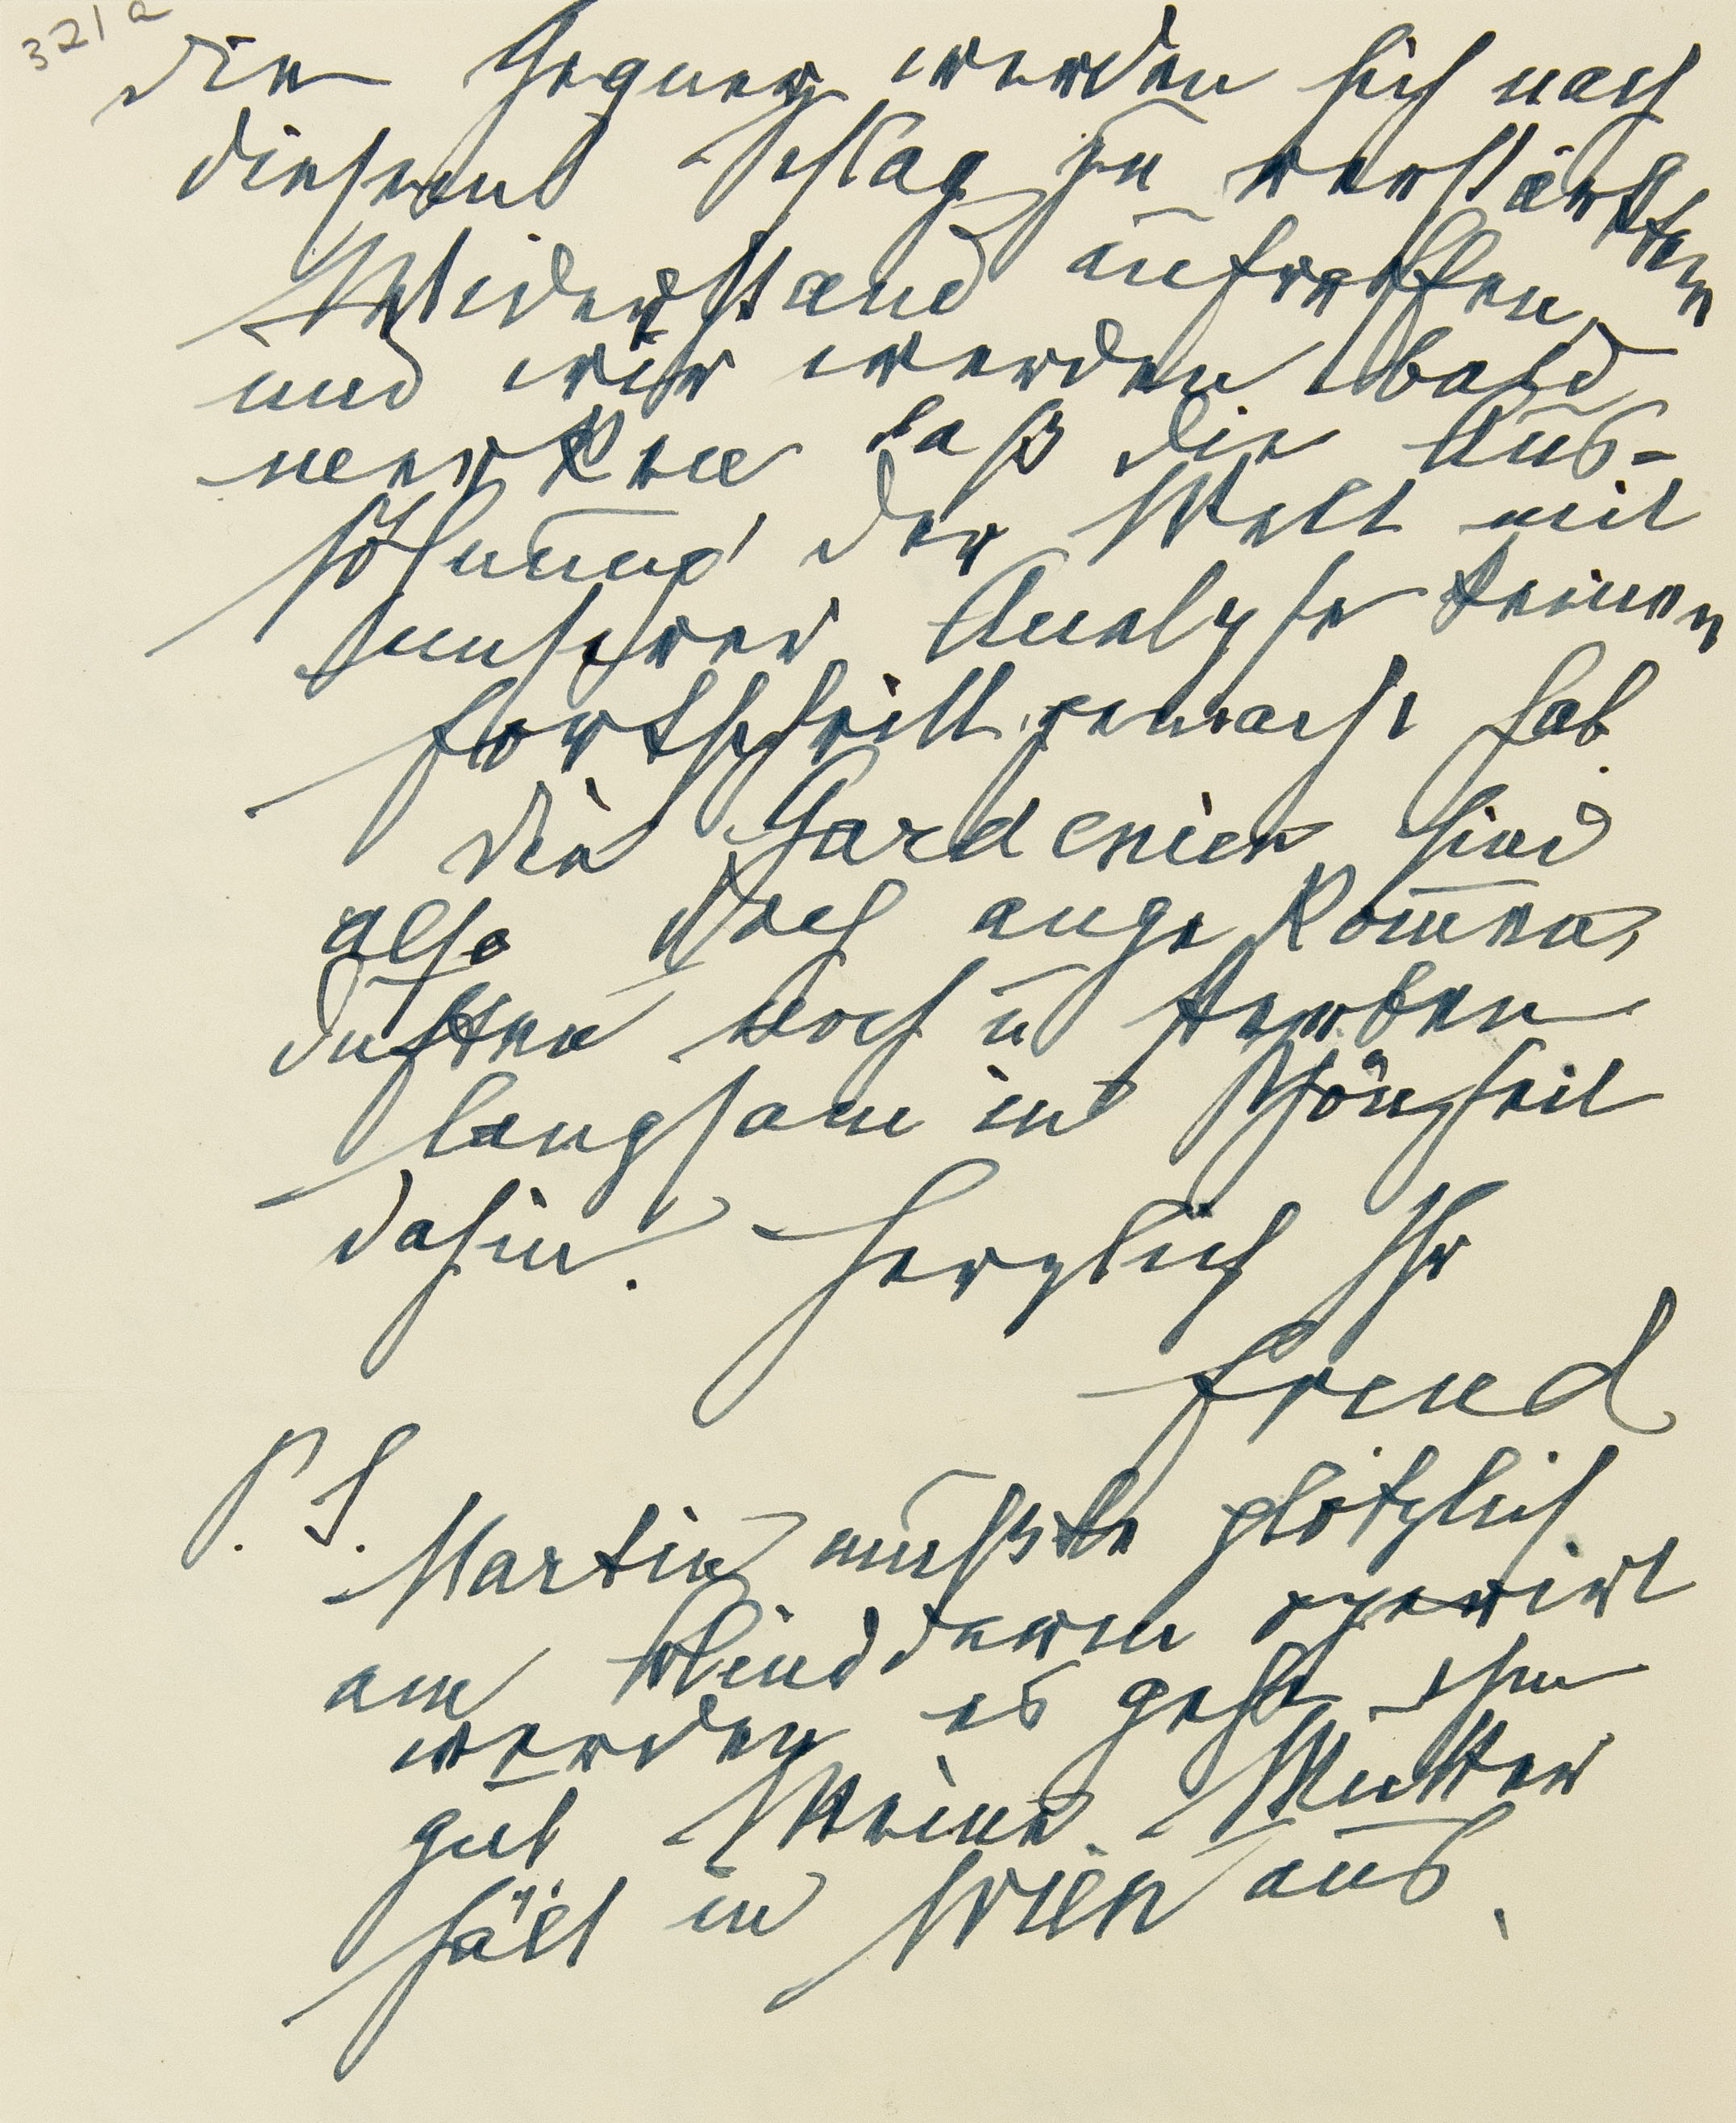 321a
Die Gegner werden sich nach
diesem Schlag zu verstärktem
Widerstand aufraffen,
und wir werden bald
merken daß die Aus=
söhnung der Welt mit
unserer Analyse keinen
Fortschritt gemacht hat.
Die Gardenien sind
also doch angekom̅en,
duften noch u sterben
langsam in Schönheit
dahin. Herzlich Ihr
Freud
P. S.
Martin mußte plötzlich
am Blinddarm operirt
werden es geht ihm
gut Meine Mutter
hält in Wien aus.